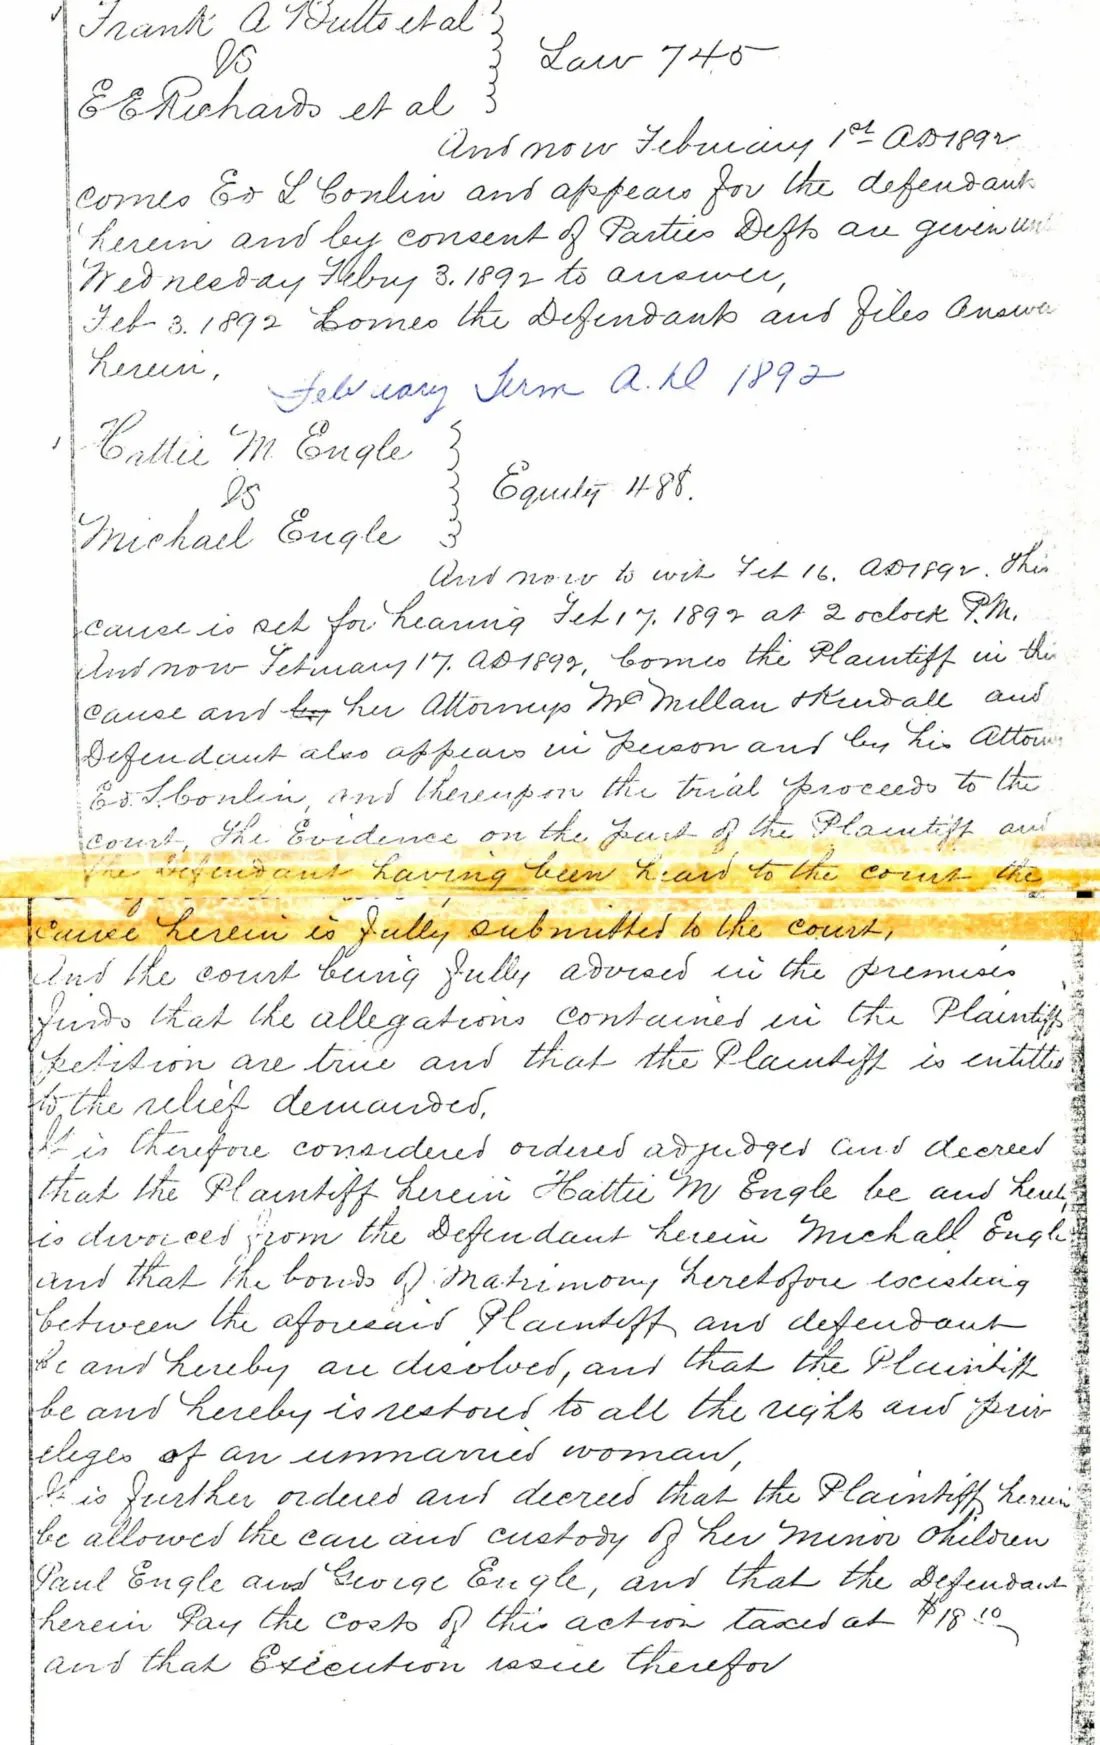 Frank A Butts et al
VS
E E Richards et al
Law 745
And now February 1st AD 1892
comes Ed L Conlin and appears for the defendants
herein and by consent of Parties Defts are given until
Wednesday Febry 3. 1892 to answer,
Feb 3. 1892 Comes the Defendants and files Answer
herein,
February Term A.D 1892
Hattie M Engle
VS
Michael Engle
Equity 488.
And now to wit Feb 16. AD 1892. This
cause is set for hearing Feb 17. 1892 at 2 oclock P.M.
And now February 17. AD 1892, Comes the Plaintiff in this
cause and by her Attorneys McMillan & Kendall and
Defendant also appears in person and by his Attorney
Ed. L. Conlin, and thereupon the trial proceeds to the
court, The Evidence on the part of the Plaintiff and
the Defendant having been heard to the court the
cause herein is fully submitted to the court,
And the court being fully advised in the premises,
finds that the allegations contained in the Plaintiffs
petition are true and that the Plaintiff is entitled
to the relief demanded,
It is therefore considered ordered adjudged and decreed
that the Plaintiff herein Hattie M Engle be and hereby
is divorced from the Defendant herein Michall Engle
and that the bonds of Matrimony heretofore existing
between the aforesaid Plaintiff and defendant
be and hereby are disolved, and that the Plaintiff
be and hereby is restored to all the rights and priv
eleges of an unmarried woman,
It is further ordered and decreed that the Plaintiff herein
be allowed the care and custody of her Minor Children
Paul Engle and George Engle, and that the Defendant
herein Pay the costs of this action taxed at $18 10
and that Execution issue therefor